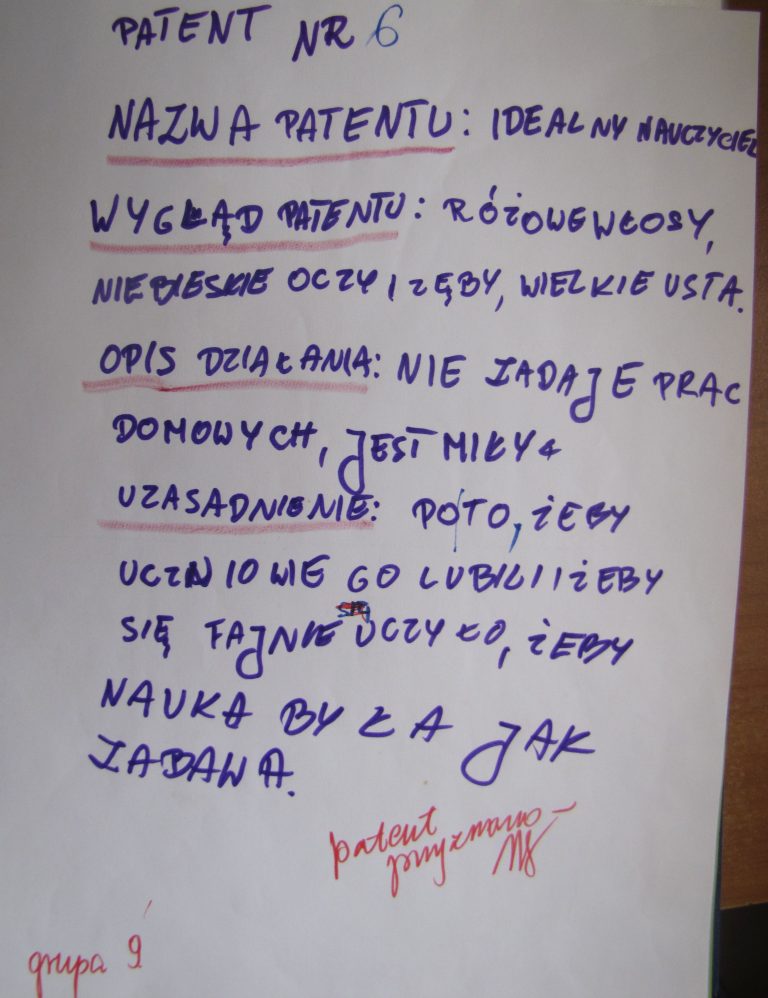 PATENT NR 6
NAZWA PATENTU: IDEALNY NAUCZYCIEL
WYGLĄD PATENTU: RÓŻOWE WŁOSY,
NIEBIESKIE OCZY I ZĘBY, WIELKIE USTA.
OPIS DZIAŁANIA: NIE ZADAJE PRAC
DOMOWYCH, JEST MIŁY
UZASADNIENIE: PO TO, ŻEBY
UCZNIOWIE GO LUBILI I ŻEBY
SIĘ FAJNIE UCZYŁO, ŻEBY
NAUKA BYŁA JAK
ZABAWA.
patent
przyznano
grupa 9